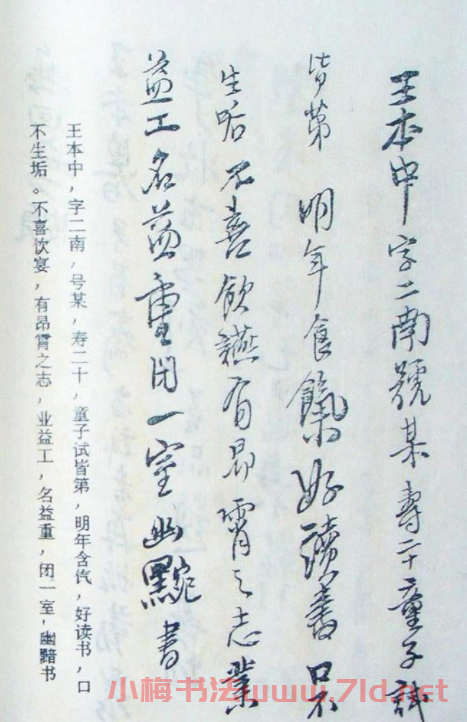 王本中字二南號某壽二十童子試
皆第明年食餼好讀書口不
生垢不喜飲讌有昂霄之志業
益工名益重閉一室幽黯書
王本中，字二南，号某，寿二十，童子试皆第，明年含饩，好读书，口
不生垢。不喜饮宴，有昂霄之志，业益工，名益重，闭一室，幽黯书
小梅书法www.7ld.net